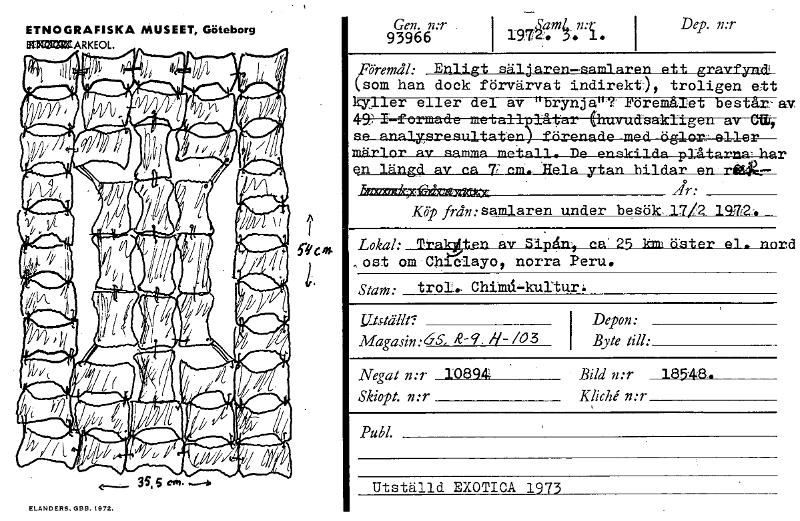 ETNOGRAFISKA MUSEET, Göteborg
ARKEOL.
54 cm
35,5 cm.
ELANDERS. GBB. 1972.
Gen. n:r
Saml. n:r
Dep. n:r
93966
1972. 3. 1.
Föremål: Enligt säljaren-samlaren ett gravfynd
(som han dock förvärvat indirekt), troligen ett
kyller eller del av "brynja"? Föremålet består av
49 I-formade metallplåtar (huvudsakligen av CU,
se analysresultaten) förenade med öglor eller
märlor av samma metall. De enskilda plåtarna har
en längd av ca 7 cm. Hela ytan bildar en
År:
Köp från: samlaren under besök 17/2 1972.
Lokal: Trakten av Sipán, ca 25 km öster el. nord
ost om Chiclayo, norra Peru.
Stam: trol. Chimú-kultur.
Utställt?
Depon:
Magasin: GS. R-9. H-103
Byte till:
Negat n:r 10894
Bild n:r 18548.
Skiopt. n:r
Kliché n:r
Publ.
Utställd EXOTICA 1973